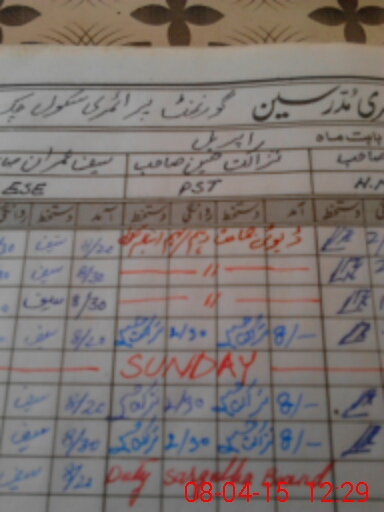 ری مدرسین گورنمنٹ پرائمری سکول چک
بابت ماہ اپریل
صاحب نزاکت حسین صاحب سیف عمران صا
H.M PST ESE
دستخط آمد دستخط روانگی دستخط آمد دستخط روانگی
8/20 سیف
— 〃 — 8/30 سیف
— 〃 — 8/30 سیف
8/- نزاکت 2/30 نزاکت 8/20 سیف
SUNDAY
8/- نزاکت 2/30 نزاکت 8/20 سیف
8/- نزاکت 2/30 نزاکت 8/30 سیف
Duty Sargodha Board 8/20 سیف
08-04-15 12:29